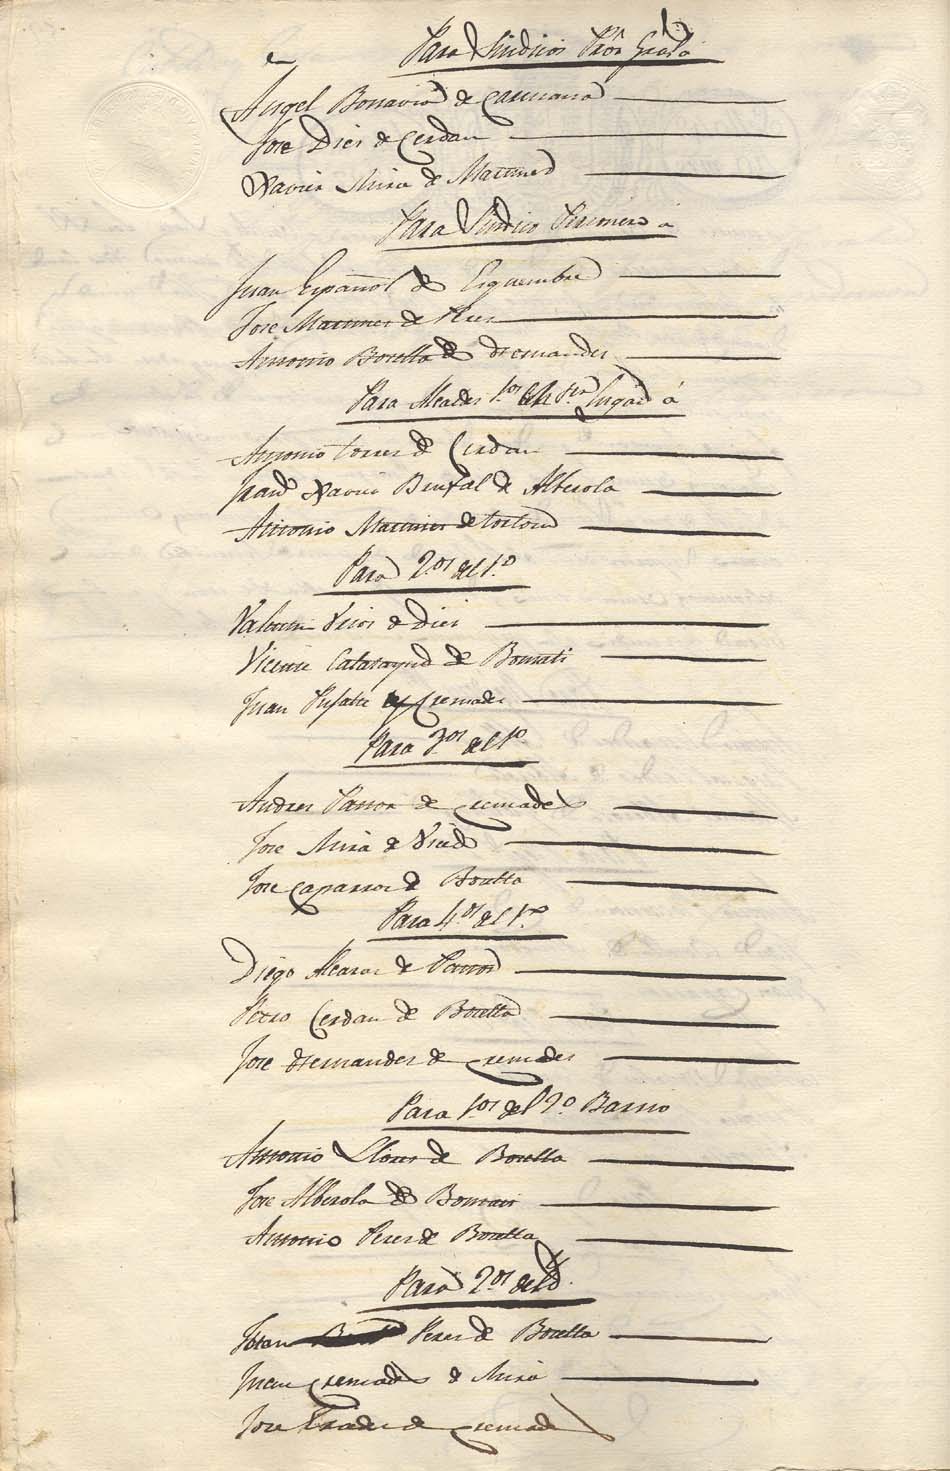 Para Sindicos Pror Gral a
Angel Bonavia de Carruana
Jose Dies de Cerdan
Xavier Mira de Martinez
Para Sindico Personero a
Juan Español de Esquembre
Jose Martines de
Antonio Botella de Hernandes
Para Alcades 1.os del 1.er lugar á
Antonio torres de Cerdan
Fran.co Xavier Brufal de Alberola
Antonio Martines de
Para 2.os del 1.o
Valentin de Dies
Vicente Calatayud de Bonmati
Juan de Cremades
Para 3.os del 1.o
Andres Pastor de Cremades
Jose Mira de
Jose Caparros de Botella
Para 4.os del 1.o
Diego Alcaras de Pastor
Pedro Cerdan de Botella
Jose Hernandes de Cremades
Para 1.os del 2.o Barrio
Antonio Llones de Botella
Jose Alberola de Bonmati
Antonio Peres de Botella
Para 2.os del
Peres de Botella
Juan Cremades de Mira
Jose de Cremades